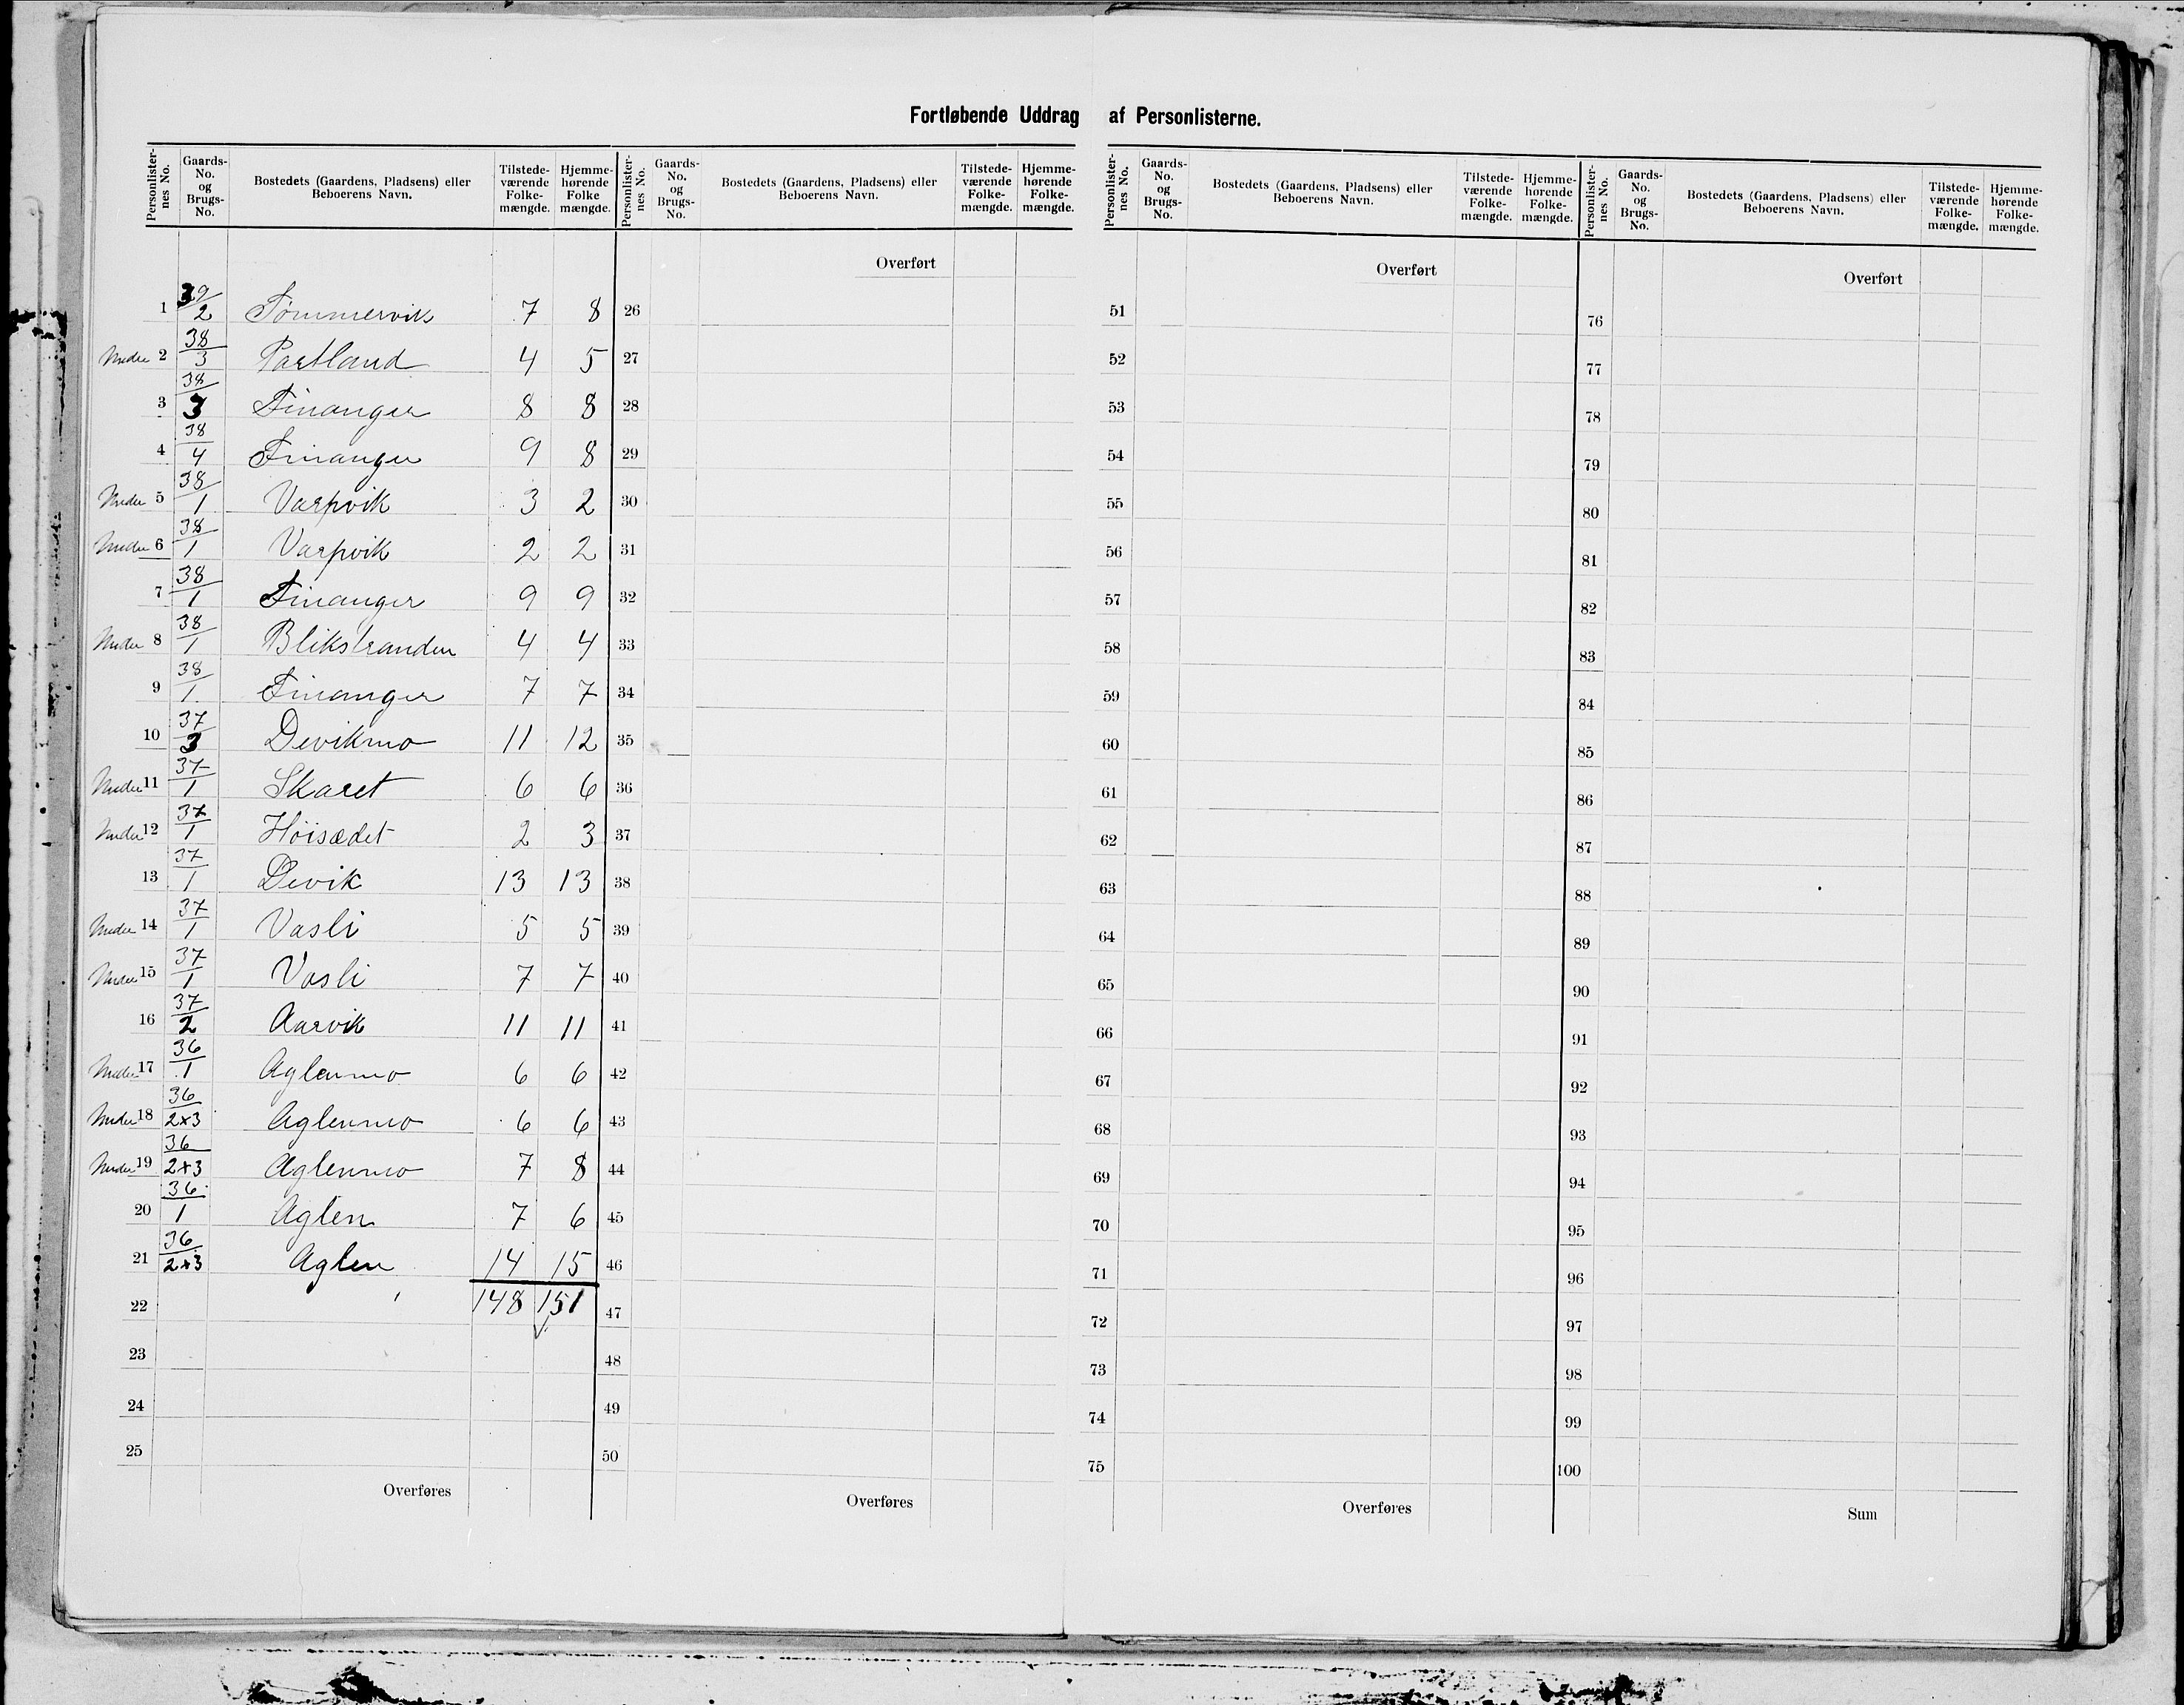 Fortløbende Uddrag af Personlisterne.
Personlister-nes No. Gaards-No. og Brugs-No. Bostedets (Gaardens, Pladsens) eller Beboerens Navn. Tilstede-værende Folke-mængde. Hjemme-hørende Folke mængde.
Personlister-nes No. Gaards-No. og Brugs-No. Bostedets (Gaardens, Pladsens) eller Beboerens Navn. Tilstede-værende Folke-mængde. Hjemme-hørende Folke-mængde.
Personlister-nes No. Gaards-No. og Brugs-No. Bostedets (Gaardens, Pladsens) eller Beboerens Navn. Tilstede-værende Folke-mængde. Hjemme-hørende Folke-mængde.
Personlister-nes No. Gaards-No. og Brugs-No. Bostedets (Gaardens, Pladsens) eller Beboerens Navn. Tilstede-værende Folke-mængde. Hjemme-hørende Folke-mængde.
1 39/2 Tømmervik 7 8
Under 2 38/3 Partland 4 5
3 38/3 Finanger 8 8
4 38/4 Finanger 9 8
Under 5 38/1 Varpvik 3 2
Under 6 38/1 Varpvik 2 2
7 38/1 Finanger 9 9
Under 8 38/1 Blikstranden 4 4
9 38/1 Finanger 7 7
10 37/3 Devikmo 11 12
Under 11 37/1 Skaret 6 6
Under 12 37/1 Høisædet 2 3
13 37/1 Devik 13 13
Under 14 37/1 Vasli 5 5
Under 15 37/1 Vasli 7 7
16 37/2 Aarvik 11 11
Under 17 36/1 Aglenmo 6 6
Under 18 36/2x3 Aglenmo 6 6
Under 19 36/2x3 Aglenmo 7 8
20 36/1 Aglen 7 6
21 36/2x3 Aglen 14 15
22 148 151
23
24
25
Overføres
Overført
26
27
28
29
30
31
32
33
34
35
36
37
38
39
40
41
42
43
44
45
46
47
48
49
50
Overføres
Overført
51
52
53
54
55
56
57
58
59
60
61
62
63
64
65
66
67
68
69
70
71
72
73
74
75
Overføres
Overført
76
77
78
79
80
81
82
83
84
85
86
87
88
89
90
91
92
93
94
95
96
97
98
99
100
Sum